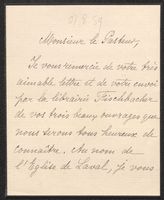 Monsieur le Pasteur,
Je vous remercie de votre très
aimable lettre et de votre envoi
par la librairie Fischbacher
de vos trois beaux ouvrages que
nous serons tous heureux de
connaître. Au nom de
l'Eglise de Laval, je vous